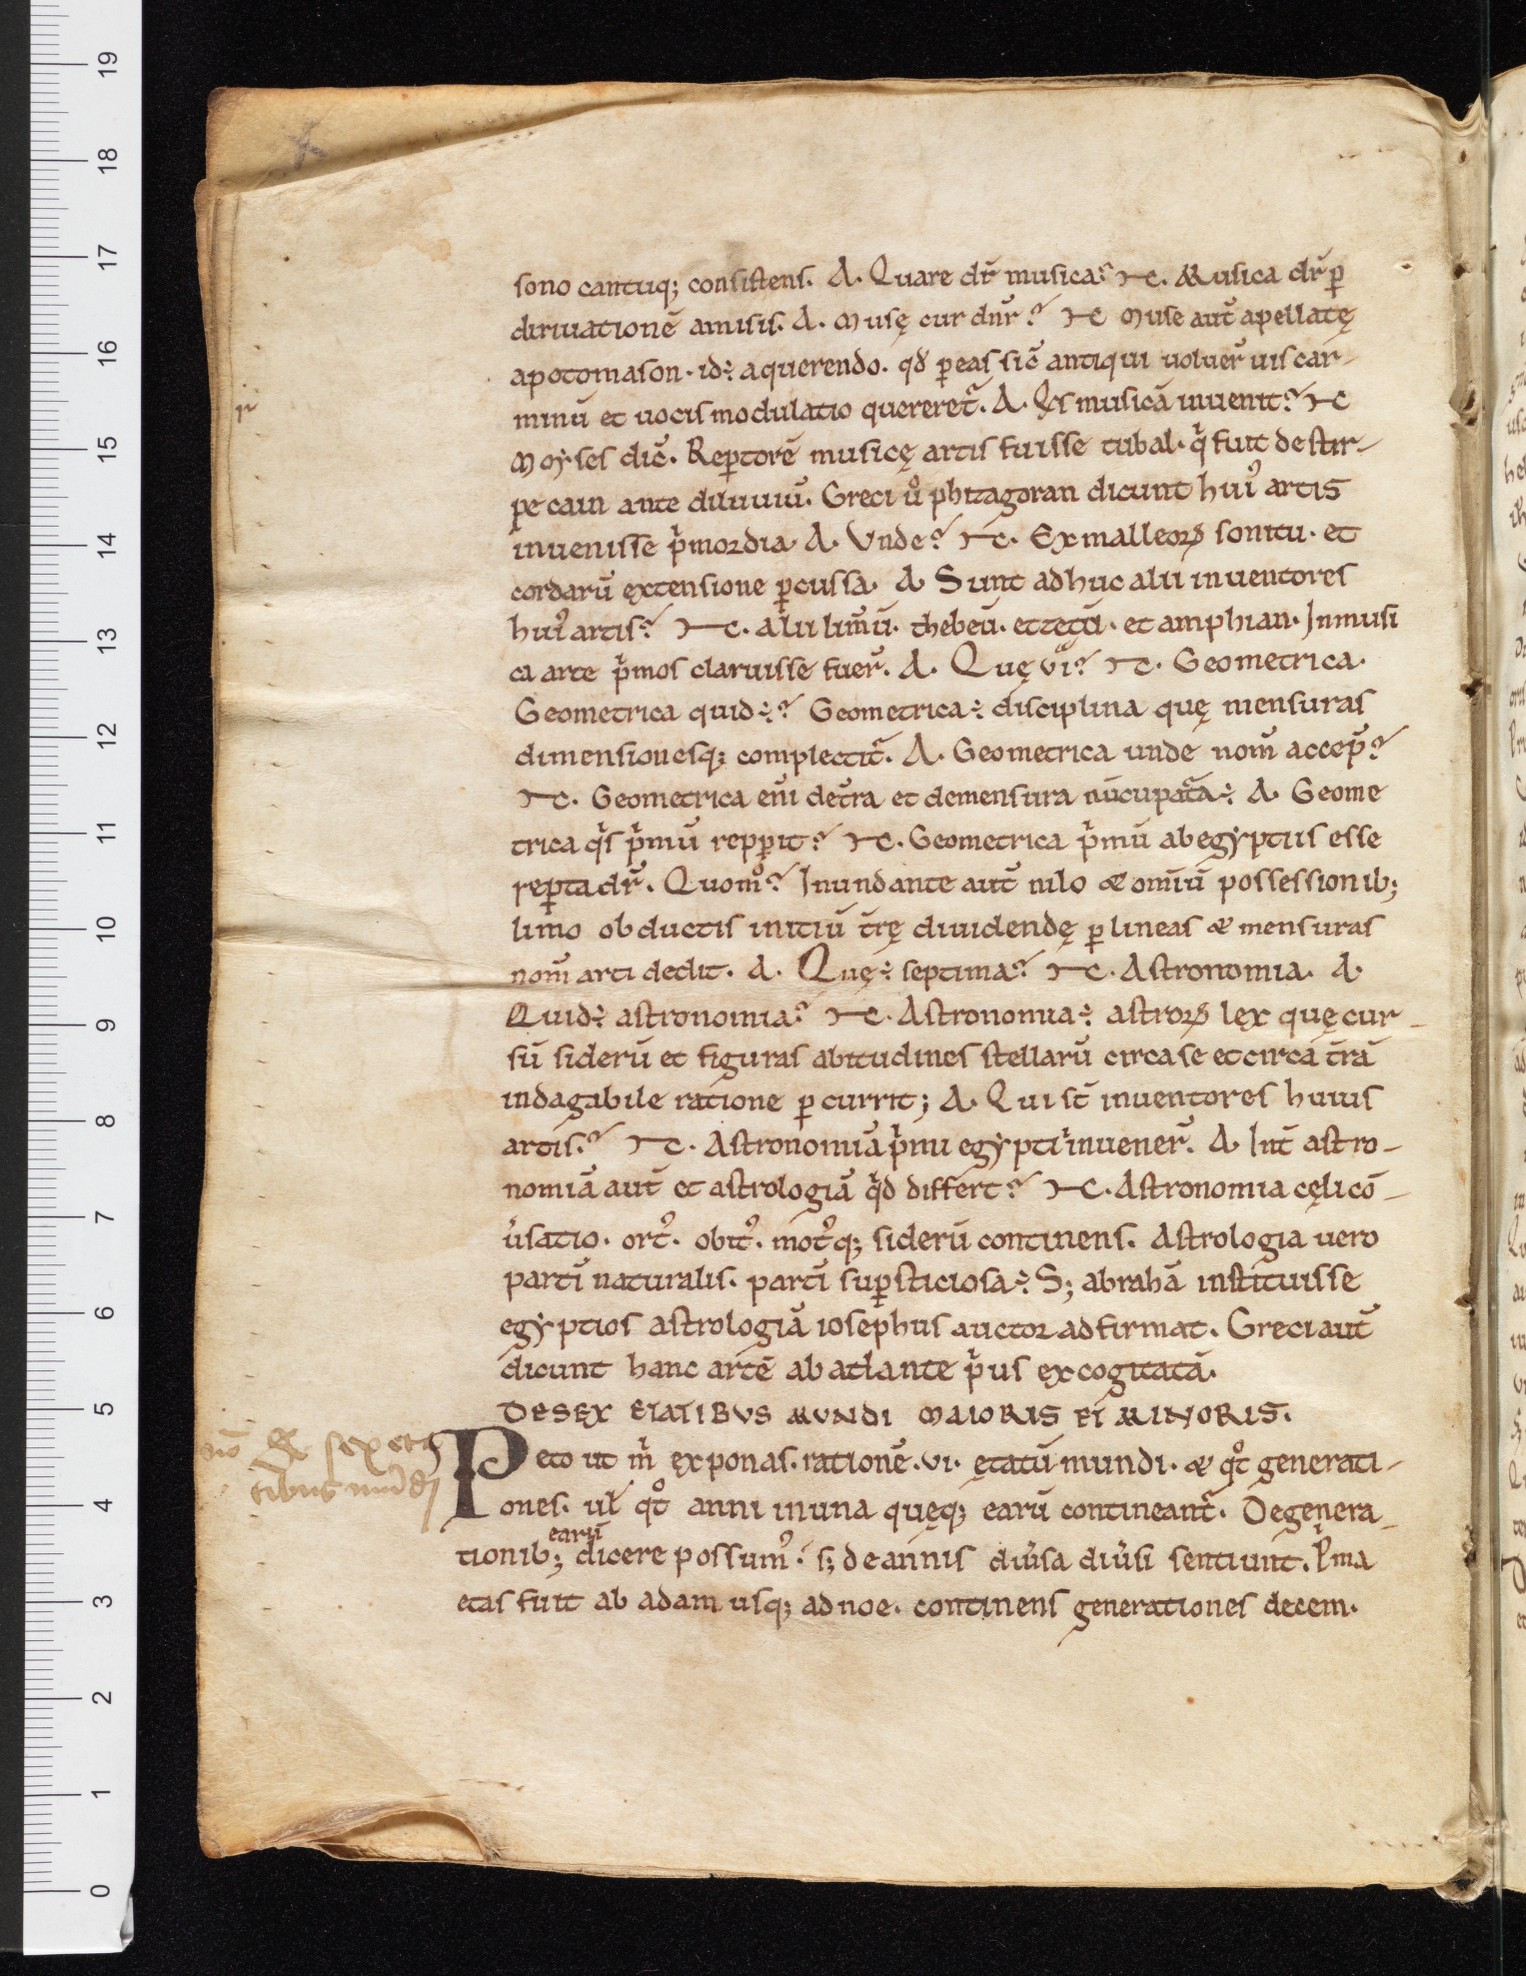 sono cantuq; consistens. A. Quare dr̄ musica? ⊢c. Musica dr̄ ꝑ
diriuationē amisis. A. Musę cur dn̄r? ⊢c Muse aut̄ apellatę
apotomason. id÷ aquerendo. qđ ꝑeas sic̄ antiqui uoluer̄ uis car-
minū et uocis modulatio quereret᷑. A. Q̣s musicā inuenit? ⊢c
Moẏses dic̄. Reꝑtorē musicę artis fuisse tubal. q̍ fuit de stir-
pe cain ante diluuiū. Greci uͦ phitagoran dicunt hui᷒ artis
inuenisse p̍mordia A. Vnde? ⊢c. Ex malleoꝝ sonitu. et
cordarū extensione ꝑcussa. A Sunt adhuc alii inuentores
hui᷒ artis? ⊢c. alii lim̄ū. thebeū. et zetū. et amphian. In musi
ca arte p̍mos claruisse fuer̄. A. Quę vi? ⊢c. Geometrica.
Geometrica quid÷? Geometrica÷ disciplina quę mensuras
dimensionesq; complectit᷑. A. Geometrica unde nom̄ accep̄?
⊢c. Geometrica eni̅ det̄ra et demensura nūcupata÷ A Geome
trica q̍s p̍mū repꝑit? ⊢c. Geometrica p̍mū ab egẏptiis esse
reꝑta dr̄. Quomͦ? Inundante aut̄ nilo & omiū possessionib;
limo obductis initiū t̄rę diuidendę ꝑ lineas & mensuras
nom̄ arti dedit. A. Quę÷ septima? ⊢c. Astronomia. A.
Quid÷ astronomia? ⊢c. Astronomia÷ astroꝝ lex quę cur-
sū siderū et figuras abitudines stellarū circa se et circa t̄rā
indagabile ratione ꝑcurrit; A. Qui st̄ inuentores huius
artis? ⊢c. Astronomiā p̍mi egẏpti inuener̄. A. Int̄ astro-
nomiā aut̄ et astrologiā q̍d differt? ⊢c. Astronomia cęli cō-
u̓satio. ort᷒. obit᷒. mot᷒q; siderū continens. Astrologia uero
parti̅ naturalis. parti̅ suꝑsticiosa÷ S; abrahā instituisse
egẏptios astrologiā iosephus auctor adfirmat. Greci aut̄
dicunt hanc artē ab atlante p̍us excogitatā.
DE SEX ETATIBVS MVNDI MAIORIS ET MINORIS.
Peto ut m̍ exponas. rationē. vi. ętatū mundi. & qͦt generati-
ones. ul̄ qͦt anni inuna quęq; earū contineant᷑. De genera-
earū
tionib; dicere possum᷒. s; de annis diu̓sa diu̓si sentiunt. P̍ma
etas fuit ab adam usq; ad noe. continens generationes decem.
sex eta
tibus mūdi